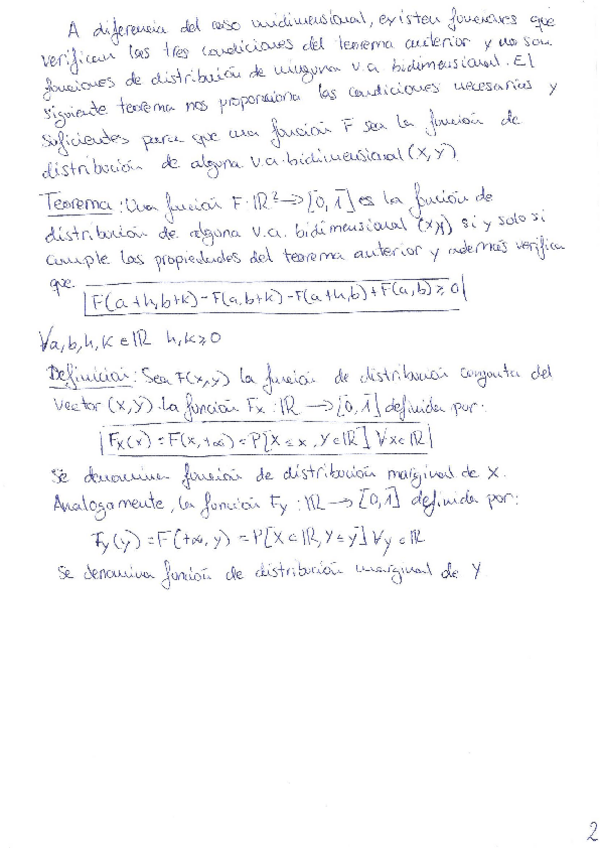 A diferencia del caso unidimensional, existen funciones que
verifican las tres condiciones del teorema anterior y no son
funciones de distribución de ninguna v.a bidimensional. El
siguiente teorema nos proporciona las condiciones necesarias y
suficientes para que una función F sea la función de
distribución de alguna v.a. bidimensional (X, Y)
Teorema: Una función F: ℝ² → [0, 1] es la función de
distribución de alguna v.a. bidimensional (X, Y) si y solo si
cumple las propiedades del teorema anterior y además verifica
que F(a+h, b+k) - F(a, b+k) - F(a+h, b) + F(a, b) ≥ 0
∀a, b, h, k ∈ ℝ h, k ≥ 0
Definición: Sea F(x, y) la función de distribución conjunta del
vector (X, Y). La función Fx : ℝ → [0, 1] definida por:
Fx(x) = F(x, +∞) = P[X ≤ x, Y ∈ ℝ] ∀x ∈ ℝ
Se denomina función de distribución marginal de X.
Analogamente, la función Fy : ℝ → [0, 1] definida por:
Fy(y) = F(+∞, y) = P[X ∈ ℝ, Y ≤ y] ∀y ∈ ℝ
Se denomina función de distribución marginal de Y
2